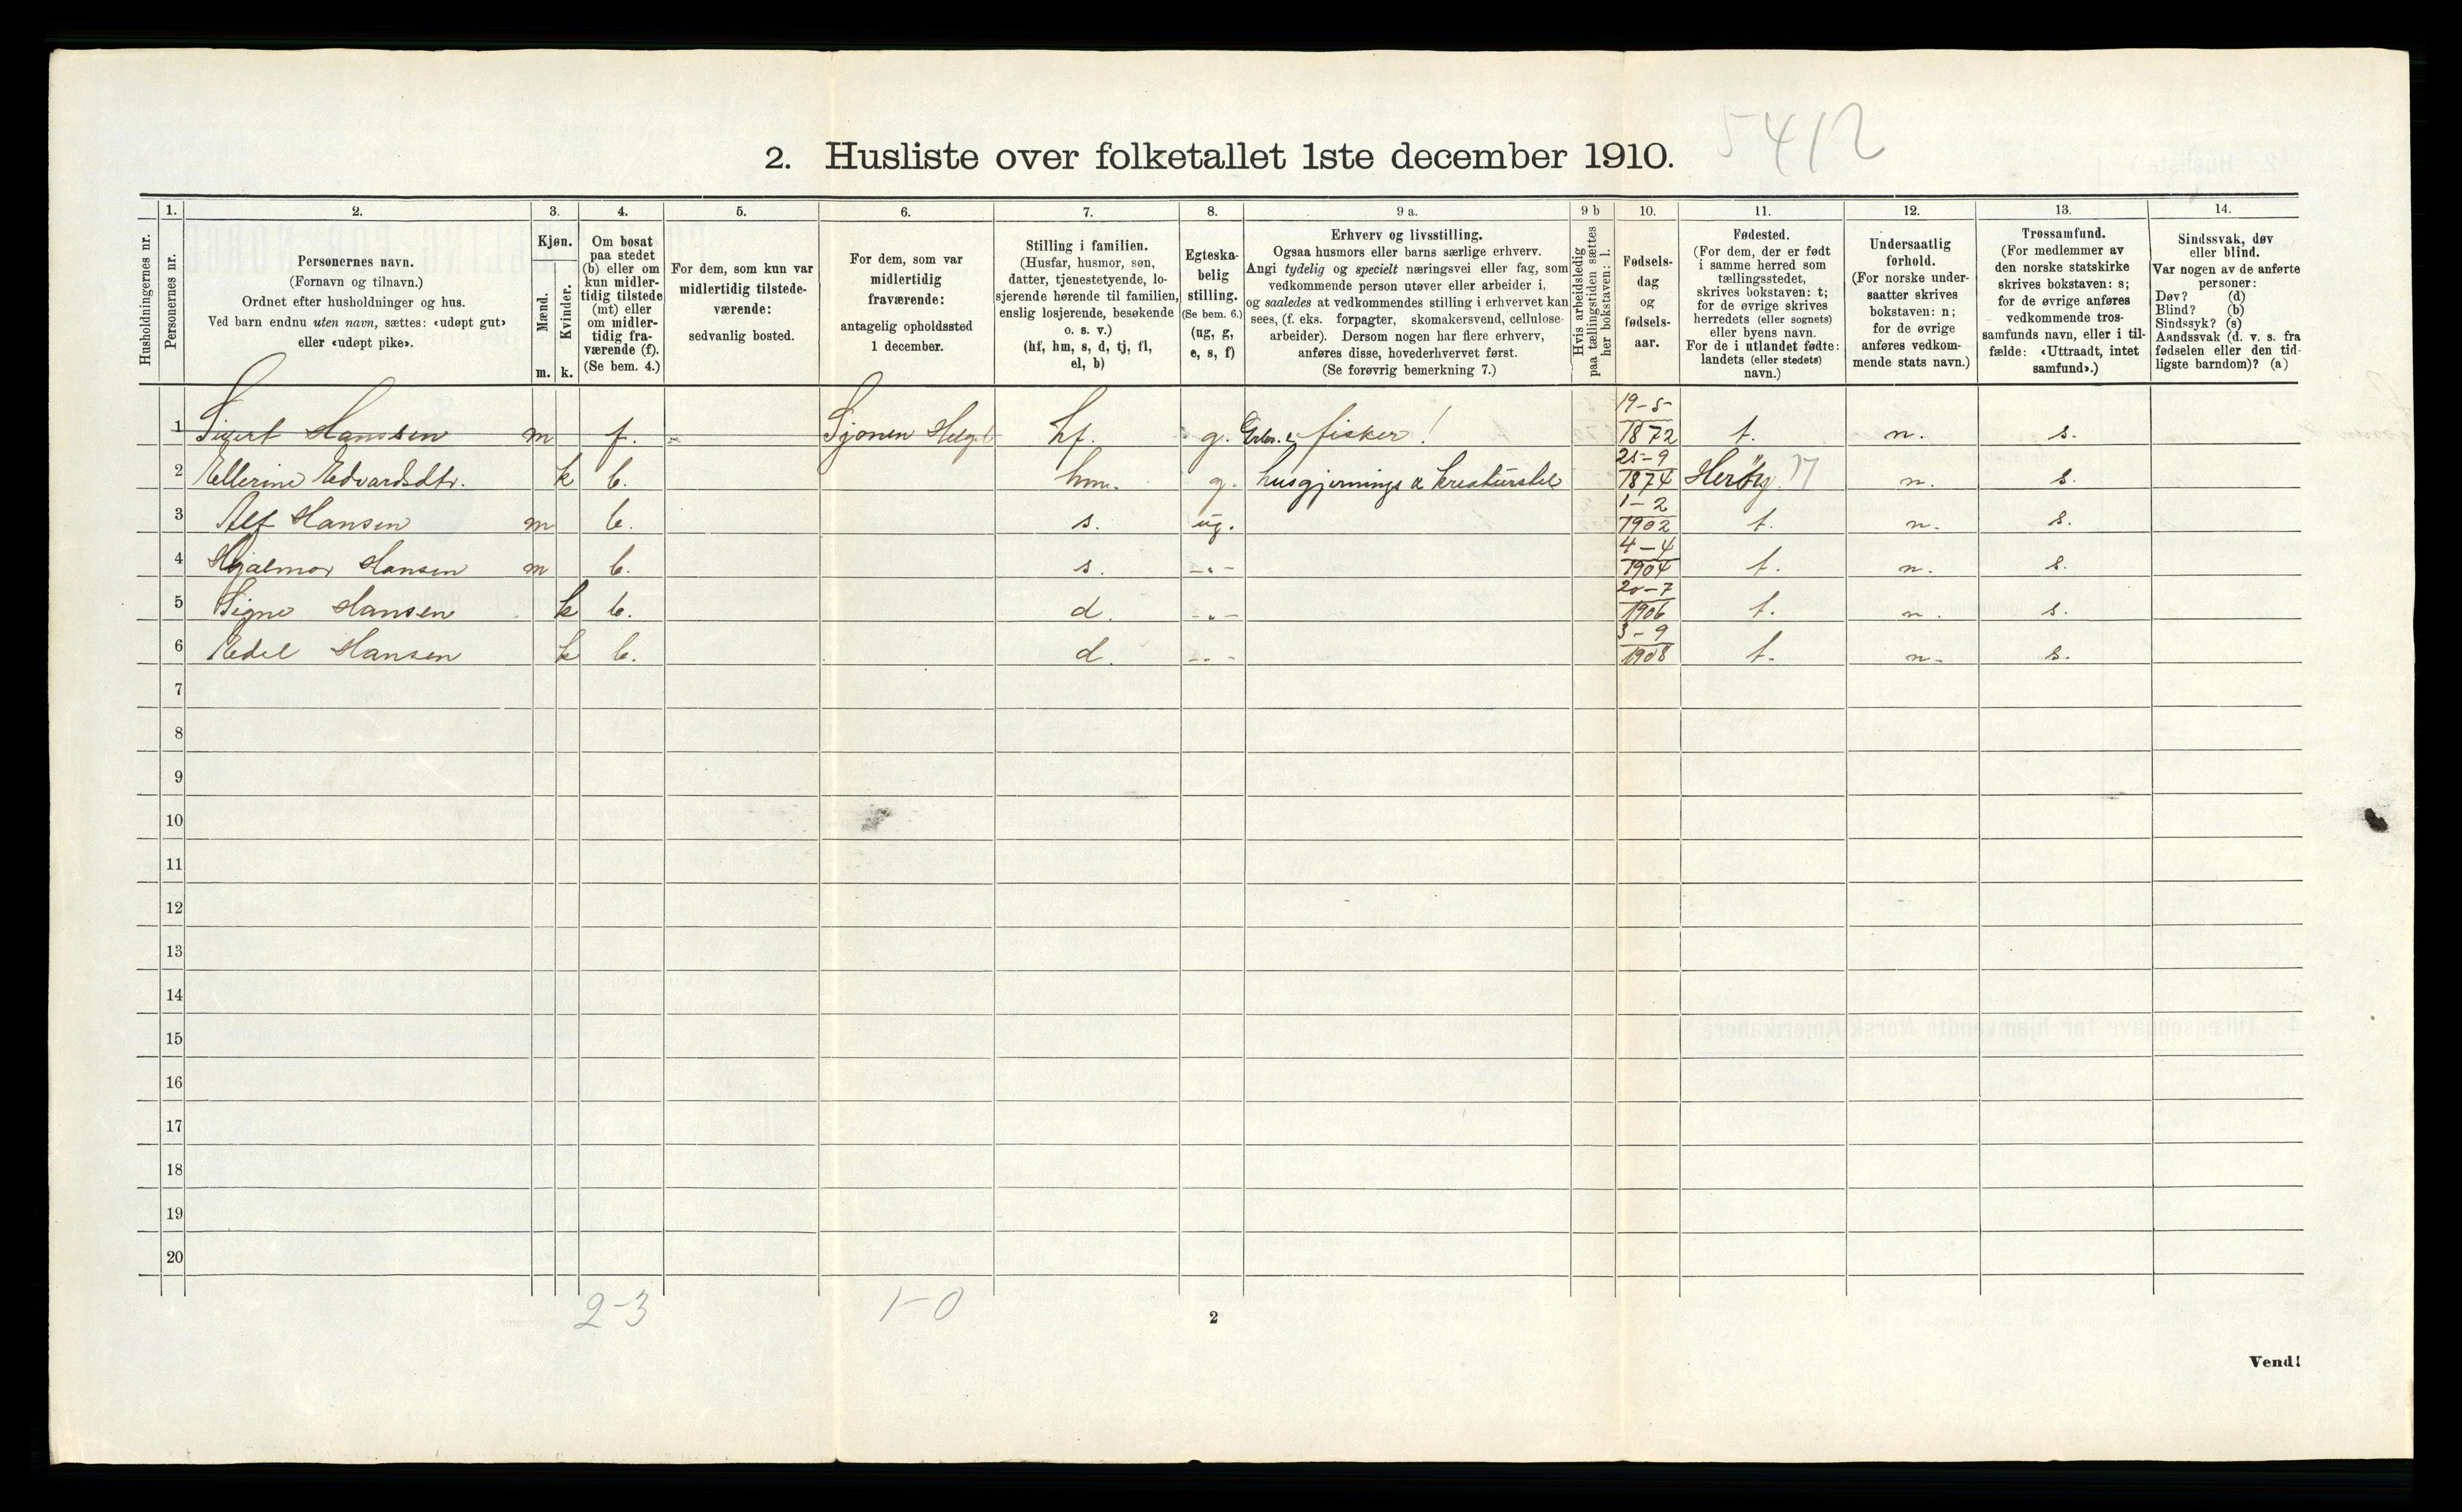 5412
2. Husliste over folketallet 1ste december 1910.
Husholdningernes nr.
1.
Personernes nr.
2.
Personernes navn.
(Fornavn og tilnavn.)
Ordnet efter husholdninger og hus.
Ved barn endnu uten navn, sættes: «udøpt gut»
eller «udøpt pike».
3.
Kjøn.
Mænd.
Kvinder.
m. k.
4.
Om bosat
paa stedet
(b) eller om
kun midler-
tidig tilstede
(mt) eller
om midler-
tidig fra-
værende (f).
(Se bem. 4.)
5.
For dem, som kun var
midlertidig tilstede-
værende:
sedvanlig bosted.
6.
For dem, som var
midlertidig
fraværende:
antagelig opholdssted
1 december.
7.
Stilling i familien.
(Husfar, husmor, søn,
datter, tjenestetyende, lo-
sjerende hørende til familien,
enslig losjerende, besøkende
o. s. v.)
(hf, hm, s, d, tj, fl,
el, b)
8.
Egteska-
belig
stilling.
(Se bem. 6.)
(ug, g,
e, s, f)
9 a.
Erhverv og livsstilling.
Ogsaa husmors eller barns særlige erhverv.
Angi tydelig og specielt næringsvei eller fag, som
vedkommende person utøver eller arbeider i,
og saaledes at vedkommendes stilling i erhvervet kan
sees, (f. eks. forpagter, skomakersvend, cellulose-
arbeider). Dersom nogen har flere erhverv,
anføres disse, hovederhvervet først.
(Se forøvrig bemerkning 7.)
9 b
Hvis arbeidsledig
paa tællingstiden sættes
her bokstaven: l.
10.
Fødsels-
dag
og
fødsels-
aar.
11.
Fødested.
(For dem, der er født
i samme herred som
tællingsstedet,
skrives bokstaven: t;
for de øvrige skrives
herredets (eller sognets)
eller byens navn.
For de i utlandet fødte:
landets (eller stedets)
navn.)
12.
Undersaatlig
forhold.
(For norske under-
saatter skrives
bokstaven: n;
for de øvrige
anføres vedkom-
mende stats navn.)
13.
Trossamfund.
(For medlemmer av
den norske statskirke
skrives bokstaven: s;
for de øvrige anføres
vedkommende tros-
samfunds navn, eller i til-
fælde: «Uttraadt, intet
samfund».)
14.
Sindssvak, døv
eller blind.
Var nogen av de anførte
personer:
Døv? (d)
Blind? (b)
Sindssyk? (s)
Aandssvak (d. v. s. fra
fødselen eller den tid-
ligste barndom)? (a)
1 Sigert Hanssen m f. Sjonen Helgel hf. g. fisker! 19-5-1872 t. n. s.
2 Ellerine Edvardsdtr. k b. hm. g. husgjernings & kreaturstel 25-9 1874 Herøy 17 n. s.
3 Alf Hansen m b. s. ug. 1-2 1902 t. n. s.
4 Hjalmar Hansen m b. s. -"- 4-4 1904 t. n. s.
5 Signe Hansen k b. d. -"- 20-7 1906 t. n. s.
6 Edel Hansen k b. d. -"- 3-9 1908 t. n. s.
7
8
9
10
11
12
13
14
15
16
17
18
19
20
2-3 1-0
2
Vend!